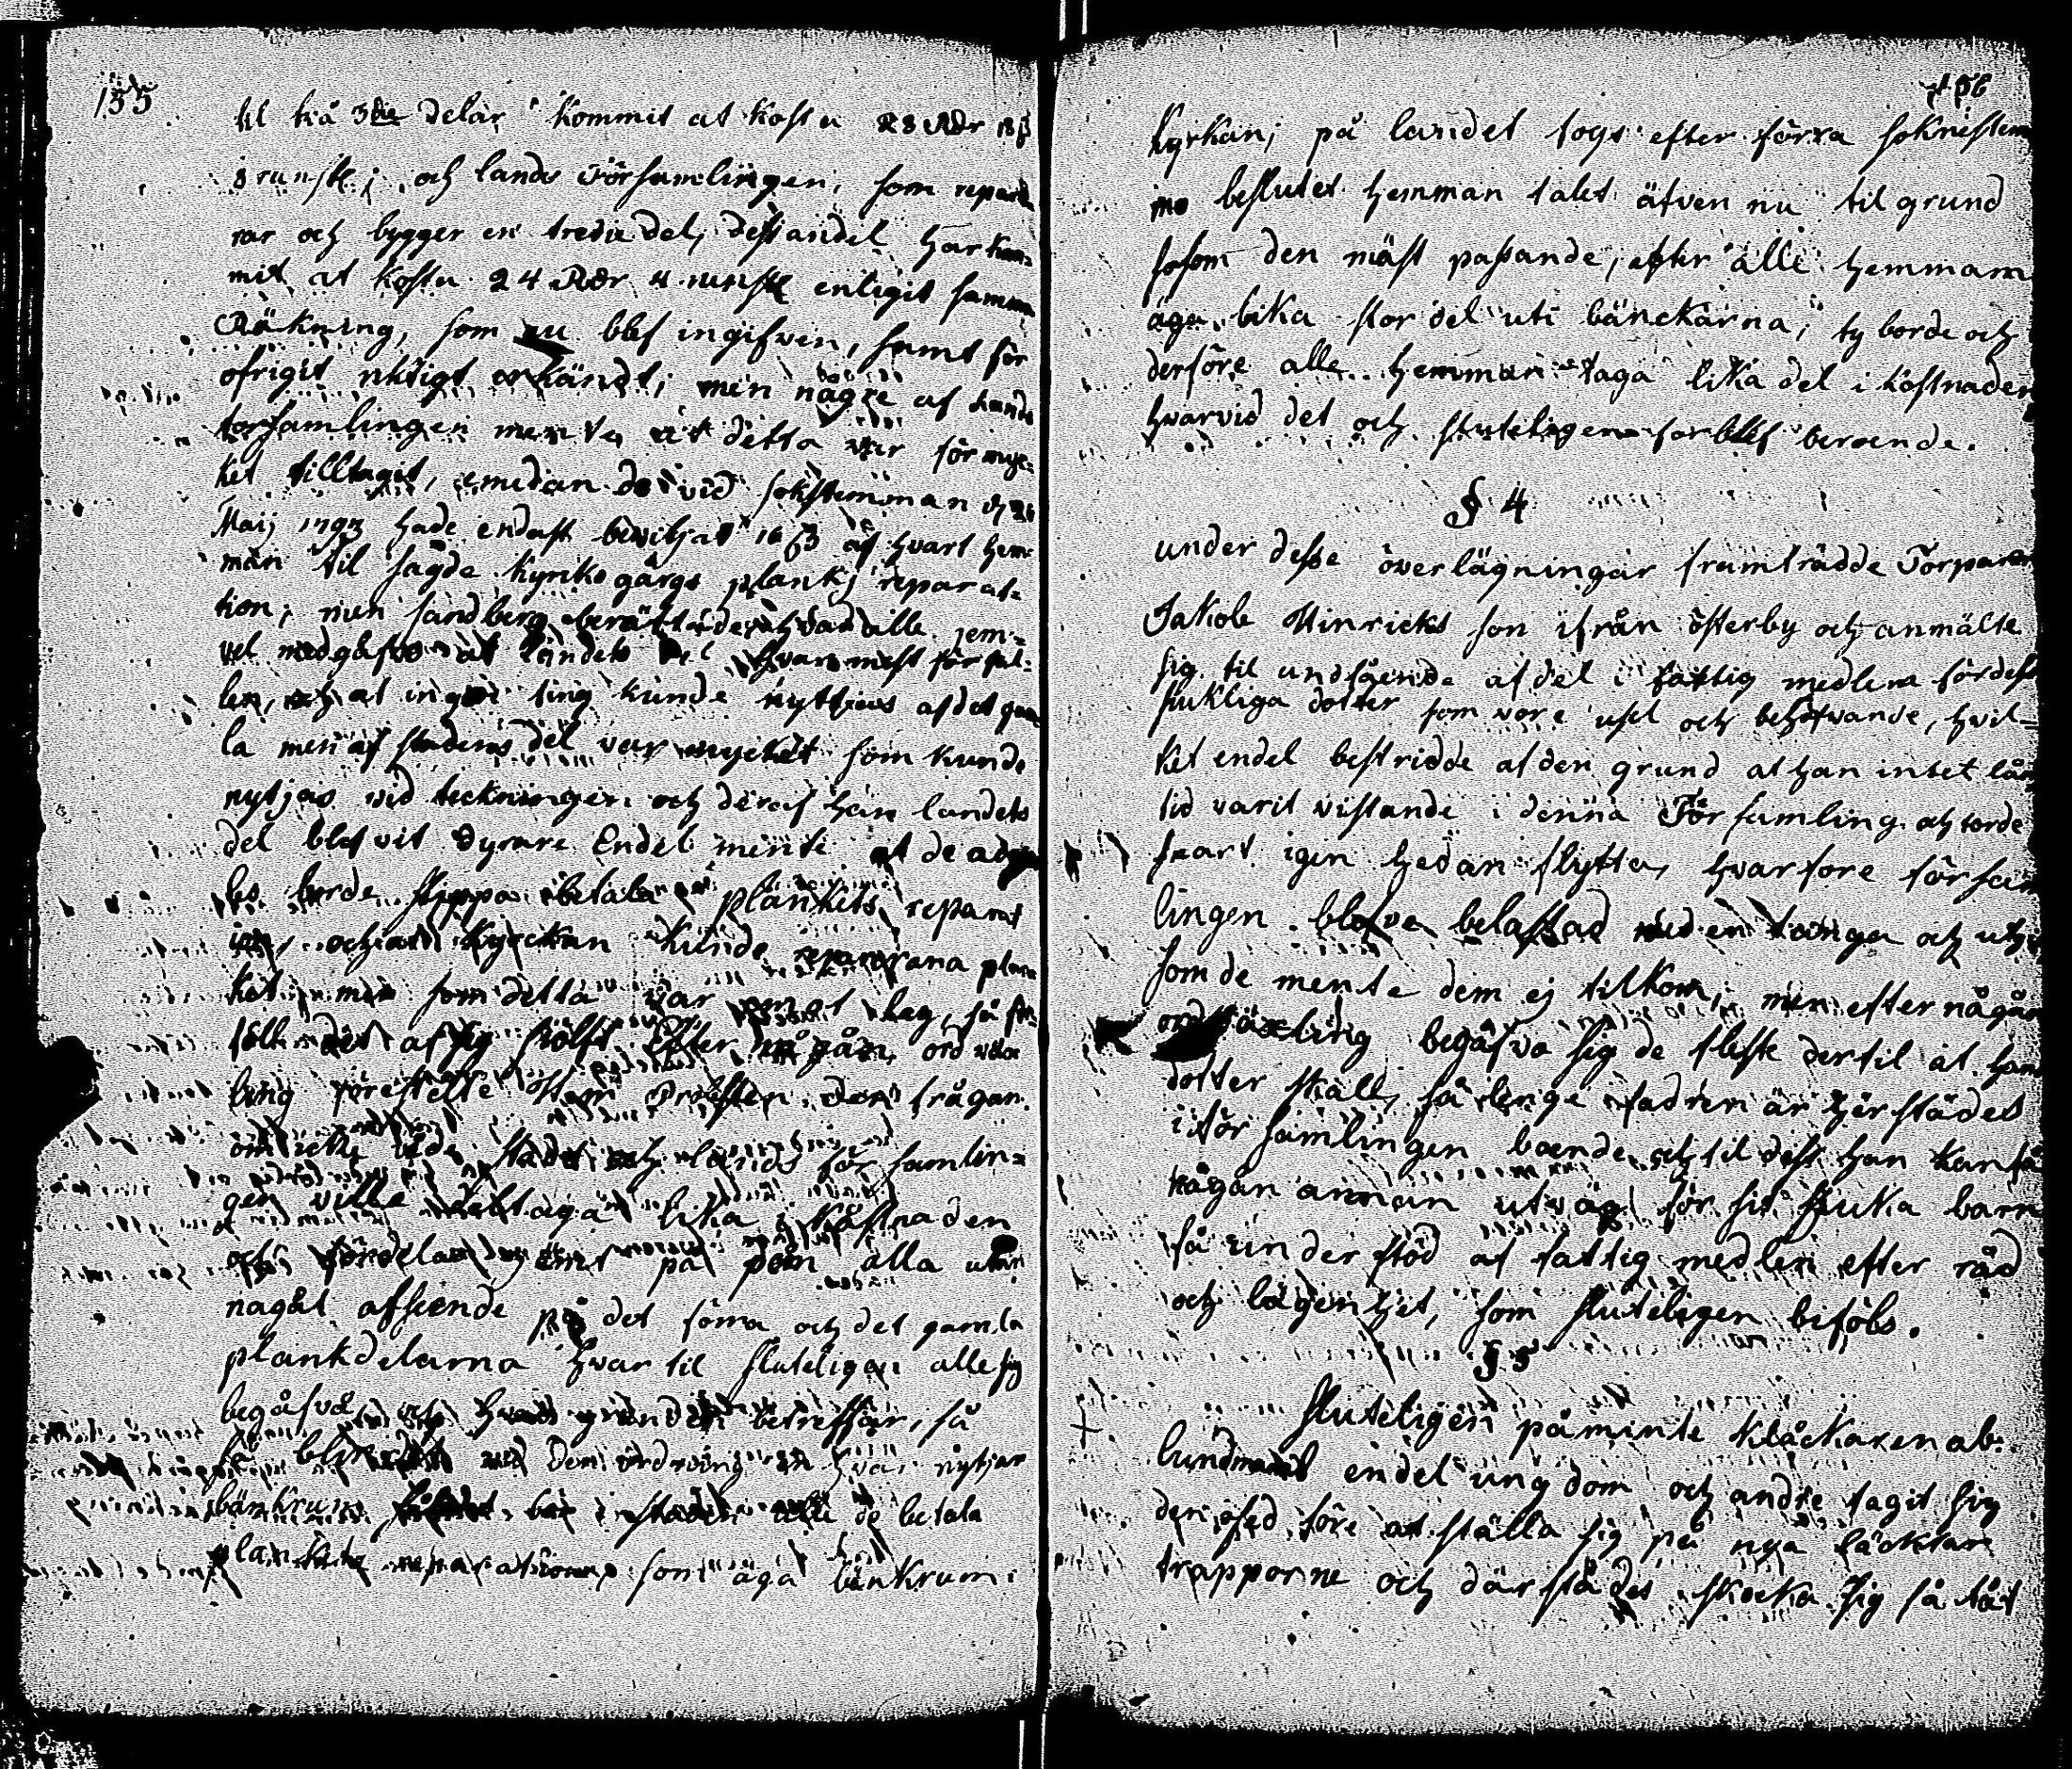 155
til två 3die delar kommit at kosta 28 Rdr 18 ß
8 runst; och lands Församlingen, som repare
rar och bygger en tredie del, dess andel har kom-
mit at kosta 24 Rdr 4 runst enligit samma
Räkning, som nu blef ingifven, samt för
öfrigit riktigt erkändt; men någre af lands
församlingen mente at detta var för myc-
ket tilltagit, emedan de vid sokstemman d 26
Maij 1793 hade endast beviljat 16 ß af hvart hem-
man til sagde kyrko gårgs plank reparat-
tion; men sandberg berättade hvad alle jem-
vel medgåfvo at landets del hvar mest förfal-
len, och at inget ting kunde nyttjas af det gam
la men af stadens del var mycket som kunde
nytjas vid teckningen och deraf han landets
del blefvit dyrare Endel mente at de ad
les borde slippa betala plankets reparat
ion, och at Kyrckan kunde reparera plan
ket men som detta var emot lag, så för-
föll det af sig sjölft Efter någån ord vex
ling förestelte Herr Probsten den frågan
om icke både stads och lands för samlin-
gen ville deltaga lika i kåstnaden
och fördela den jemt på dem alla utan
nagåt afseende på det förra och det gamla
plankdelarna hvar til sluteligen alle sig
begåfvo, och hvad grunden betreffar, så
blef det vid den ordning at hvar nytjar
bänkrum i staden alle de betala
plankets reparation som äga bänkrum i
156
Kyrkan; på landet togs efter förra soknestem
mo beslutet hemman talet äfven nu til grund
såsom den mäst passande, efter alle hemmam
äga lika stor del uti bänckarna, ty borde och
derföre alle hemman taga lika del i kostnaden
hvarvid det och sluteligen förblef beroende.
§ 4
under desse överlägningar framträdde Torparen
Jakob Hinricks son ifrån österby och anmälte
sig til undfående af del i fattig medlen för dess
siukliga dotter som vore usel och behöfvande, hvil-
ket endel bestridde af den grund at han intet lån
tid varit vistande i denna För samling och torde
snart igen hedan flytta, hvarfore församl
lingen blefve belastad med en tunga och utgi
som de mente dem ej tilkom, men efter någån
ord växling begåfvo sig de fleste dertil at hans
dotter skall, så lenge fadren är här städes
i församlingen boende och til dess han kan få
någån annan utväg för sit siuka barn
få under stöd af fattig medlen efter råd
och lägenhet, som sluteligen bifölls.
§ 5
Sluteligen påminte Klåckaren ab:
lundmark endel ungdom och andre tagit sig
den osed före at ställa sig på nya läcktare
trapporne och där städes skocka sig så tät